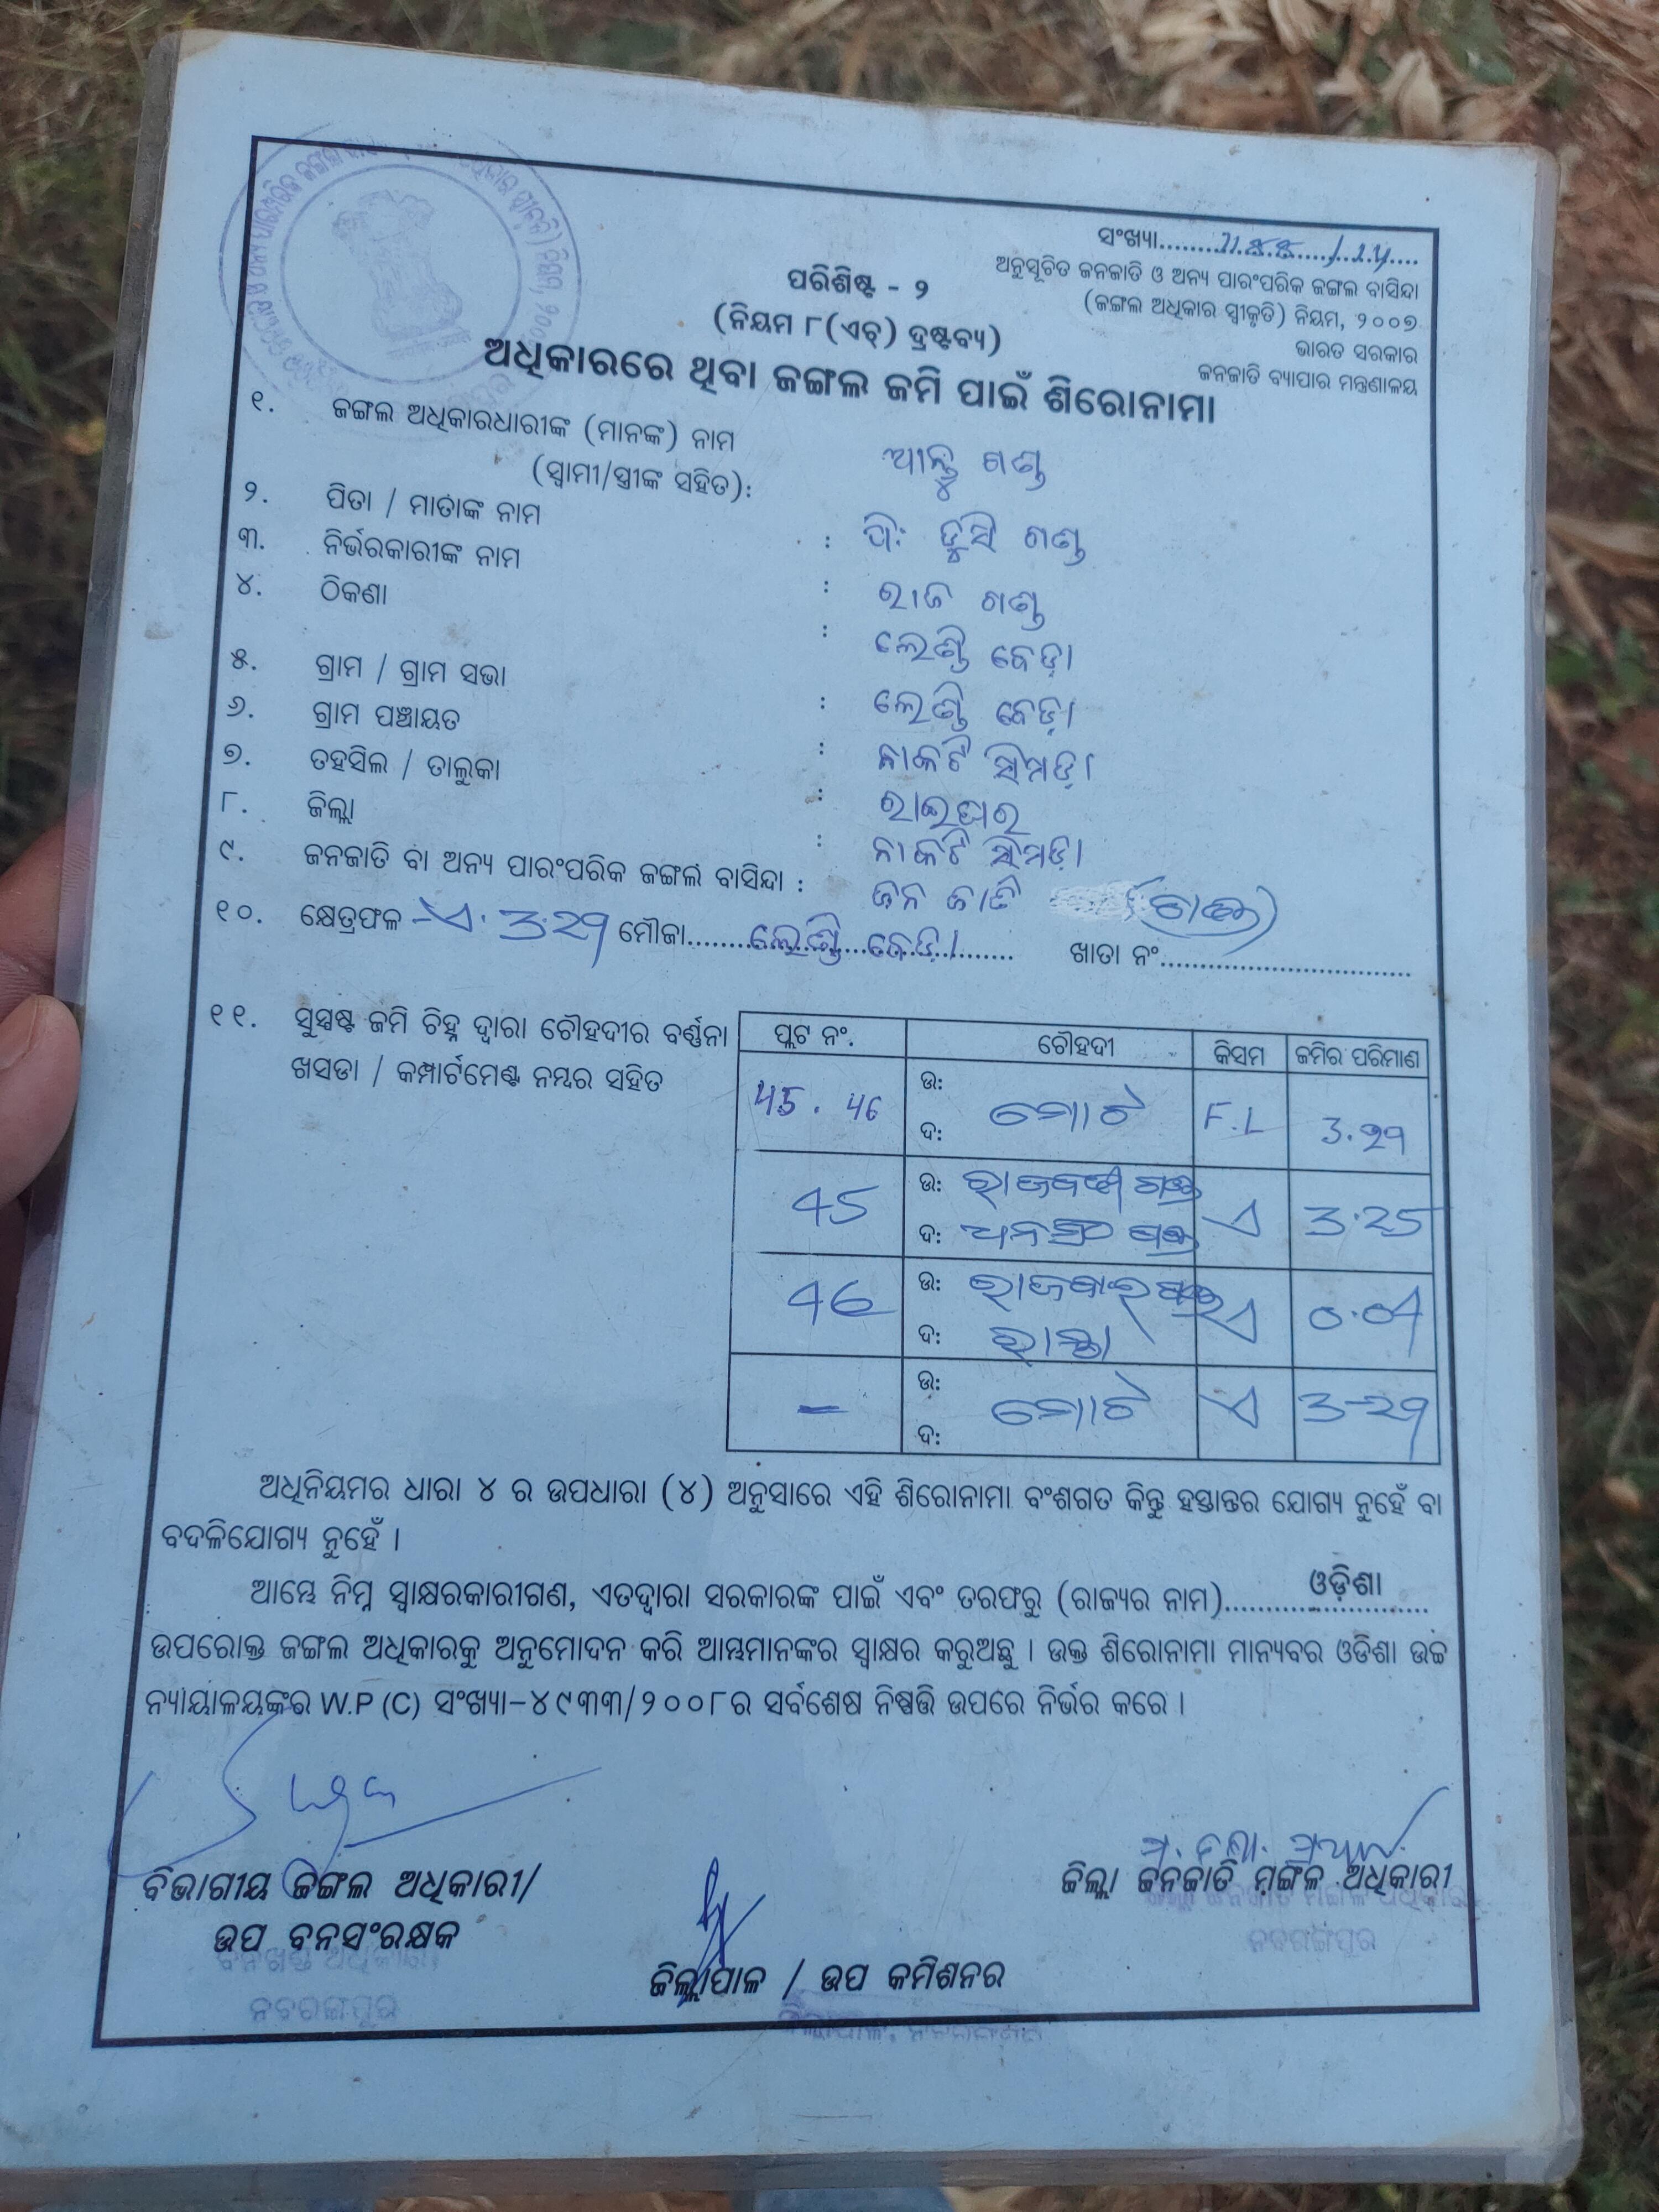 ସଂଖ୍ୟା
ଅନୁସୂଚିତ ଜନଜାତି ଓ ଅନ୍ୟ ପାରଂପରିକ ଜଙ୍ଗଲ ବାସିନ୍ଦା
(ଜଙ୍ଗଲ ଅଧିକାର ସ୍ୱୀକୃତି) ନିୟମ, ୨୦୦୭
ଭାରତ ସରକାର
ଜନଜାତି ବ୍ୟାପାର ମନ୍ତ୍ରଣାଳୟ
ପରିଶିଷ୍ଟ - ୨
(ନିୟମ ୮(ଏଚ୍) ଦ୍ରଷ୍ଟବ୍ୟ)
ଅଧିକାରରେ ଥିବା ଜଙ୍ଗଲ ଜମି ପାଇଁ ଶିରୋନାମା
୧. ଜଙ୍ଗଲ ଅଧିକାରଧାରୀଙ୍କ (ମାନଙ୍କ) ନାମ
(ସ୍ୱାମୀ/ସ୍ତ୍ରୀଙ୍କ ସହିତ): ଆନ୍ତୁ ଗଣ୍ଡ
୨. ପିତା / ମାତାଙ୍କ ନାମ : ପି: ଡୁସି ଗଣ୍ଡ
୩. ନିର୍ଭରକାରୀଙ୍କ ନାମ : ରାଜ ଗଣ୍ଡ
୪. ଠିକଣା : ଲେଣ୍ଡି ବେଡ଼ା
୫. ଗ୍ରାମ / ଗ୍ରାମ ସଭା : ଲେଣ୍ଡି ବେଡ଼ା
୬. ଗ୍ରାମ ପଞ୍ଚାୟତ : ନାକଟି ସିମଡ଼ା
୭. ତହସିଲ / ତାଲୁକା : ରାଇଘର
୮. ଜିଲ୍ଲା : ନାକଟି ସିମଡ଼ା
୯. ଜନଜାତି ବା ଅନ୍ୟ ପାରଂପରିକ ଜଙ୍ଗଲ ବାସିନ୍ଦା : ଜନ ଜାତି (ଗଣ୍ଡ)
୧୦. କ୍ଷେତ୍ରଫଳ -ଏ. 3.29 ମୌଜା ଲେଣ୍ଡି ବେଡ଼ା ଖାତା ନଂ
୧୧. ସୁସ୍ପଷ୍ଟ ଜମି ଚିହ୍ନ ଦ୍ୱାରା ଚୌହଦୀର ବର୍ଣ୍ଣନା
ଖସଡା / କମ୍ପାର୍ଟମେଣ୍ଟ ନମ୍ବର ସହିତ
ପ୍ଲଟ ନଂ. ଚୌହଦୀ କିସମ ଜମିର ପରିମାଣ
45. 46 ଉ: ଦ: ମୋଟ F.L 3.29
45 ଉ: ଗଣ୍ଡ ଏ 3.25
ଦ: ଗଣ୍ଡ
46 ଉ: ଏ 0.04
ଦ: ରାସ୍ତା
- ଉ: ଦ: ମୋଟ ଏ 3-29
ଅଧିନିୟମର ଧାରା ୪ ର ଉପଧାରା (୪) ଅନୁସାରେ ଏହି ଶିରୋନାମା ବଂଶଗତ କିନ୍ତୁ ହସ୍ତାନ୍ତର ଯୋଗ୍ୟ ନୁହେଁ ବା
ବଦଳିଯୋଗ୍ୟ ନୁହେଁ ।
ଆମ୍ଭେ ନିମ୍ନ ସ୍ୱାକ୍ଷରକାରୀଗଣ, ଏତଦ୍ୱାରା ସରକାରଙ୍କ ପାଇଁ ଏବଂ ତରଫରୁ (ରାଜ୍ୟର ନାମ) ଓଡ଼ିଶା
ଉପରୋକ୍ତ ଜଙ୍ଗଲ ଅଧିକାରକୁ ଅନୁମୋଦନ କରି ଆମ୍ଭମାନଙ୍କର ସ୍ୱାକ୍ଷର କରୁଅଛୁ । ଉକ୍ତ ଶିରୋନାମା ମାନ୍ୟବର ଓଡିଶା ଉଚ୍ଚ
ନ୍ୟାୟାଳୟଙ୍କର W.P (C) ସଂଖ୍ୟା-୪୯୩୩/୨୦୦୮ର ସର୍ବଶେଷ ନିଷ୍ପତ୍ତି ଉପରେ ନିର୍ଭର କରେ ।
ବିଭାଗୀୟ ଜଙ୍ଗଲ ଅଧିକାରୀ/
ଉପ ବନସଂରକ୍ଷକ
ନବରଙ୍ଗପୁର
ଜିଲ୍ଲାପାଳ / ଉପ କମିଶନର
ଜିଲ୍ଲା ଜନଜାତି ମଙ୍ଗଳ ଅଧିକାରୀ
ନବରଙ୍ଗପୁର